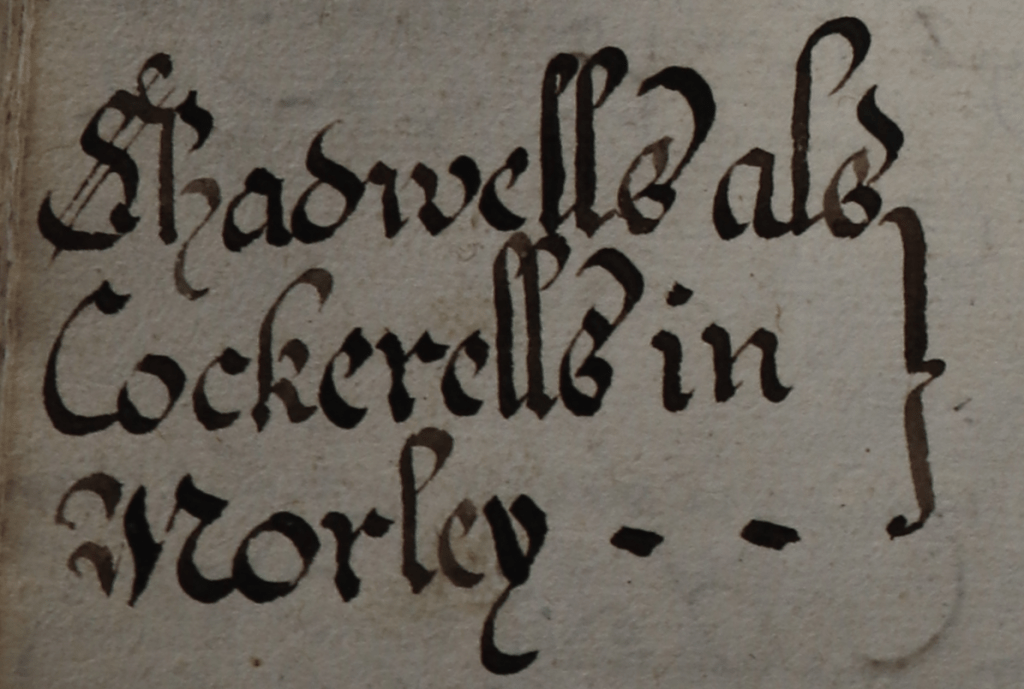 Shadwells als
Cockerells in
Morley - -